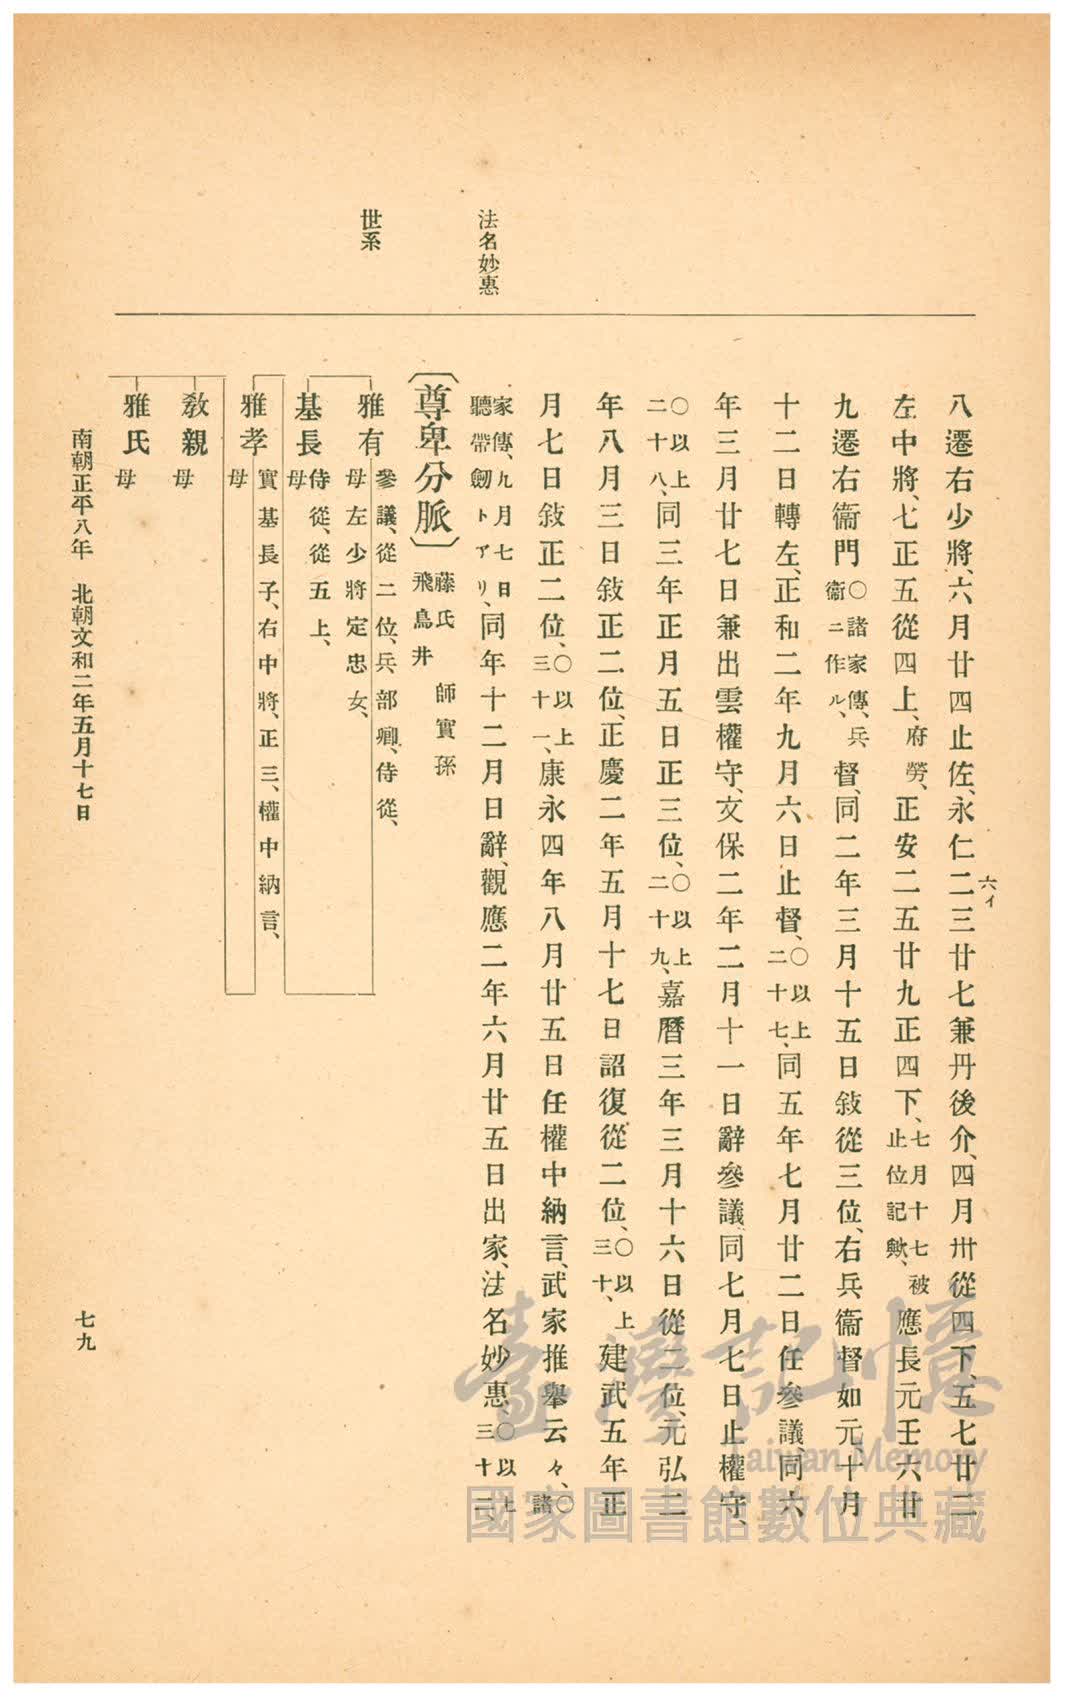 法名妙惠
世系
八遷右少將、六月廿四止佐、永仁二三廿七兼丹後介、四月卅從四下、五七廿二
六イ
左中將、七正五從四上、府勞、正安二五廿九正四下、七月十七被止位記歟、應長元壬六廿
九遷右衞門〇諸家傳、兵衞ニ作ル、督、同二年三月十五日敍從三位、右兵衞督如元、十月
十二日轉左、正和二年九月六日止督、〇以上二十七、同五年七月廿二日任參議、同六
年三月廿七日兼出雲權守、文保二年二月十一日辭參議、同七月七日止權守、
〇以上二十八、同三年正月五日正三位、〇以上二十九、嘉曆三年三月十六日從二位、元弘二
年八月三日敍正二位、正慶二年五月十七日詔復從二位、〇以上三十、建武五年正
月七日敍正二位、〇以上三十一、康永四年八月廿五日任權中納言、武家推擧云々、〇諸
家傳、九月七日聽帶劒トアリ、同年十二月日辭、觀應二年六月廿五日出家、法名妙惠、〇以上三十二、
〔尊卑分脈〕藤氏 師實孫
飛鳥井
雅有 參議、從二位、兵部卿、侍從、
母左少將定忠女、
基長 侍從、從五上、
母
雅孝 實基長子、右中將、正三、權中納言、
母
敎親 母
雅氏 母
南朝正平八年 北朝文和二年五月十七日
七九
臺灣記憶
Taiwan Memory
國家圖書館數位典藏